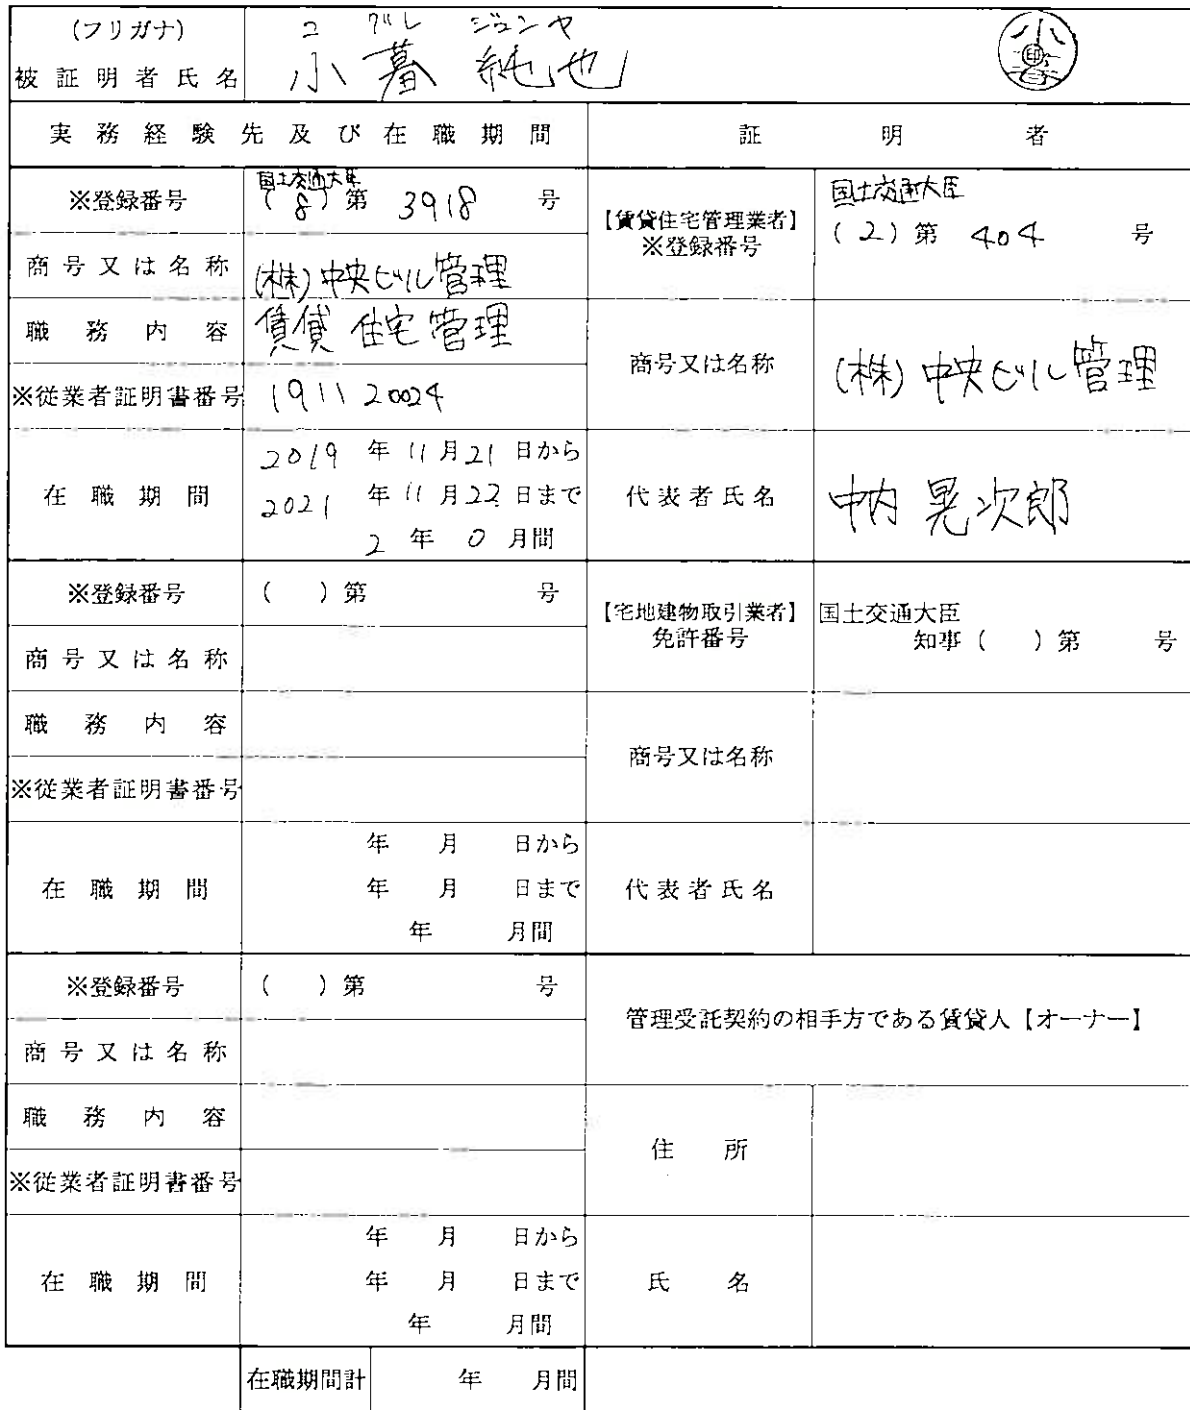 (フリガナ) コグレ ジュンヤ
被証明者氏名 小暮 純也 小暮 印
実務経験先及び在職期間 証明者
※登録番号 国土交通大臣 (8)第 3918 号
商号又は名称 (株)中央ビル管理
職務内容 賃貸住宅管理
※従業者証明書番号 191120024
在職期間 2019年11月21日から
2021年11月22日まで
2年0月間
【賃貸住宅管理業者】
※登録番号 国土交通大臣
(2)第 404 号
商号又は名称 (株)中央ビル管理
代表者氏名 中内 晃次郎
※登録番号 ( )第 号
商号又は名称
職務内容
※従業者証明書番号
在職期間 年 月 日から
年 月 日まで
年 月間
【宅地建物取引業者】
免許番号 国土交通大臣
知事( )第 号
商号又は名称
代表者氏名
※登録番号 ( )第 号
商号又は名称
職務内容
※従業者証明書番号
在職期間 年 月 日から
年 月 日まで
年 月間
管理受託契約の相手方である賃貸人【オーナー】
住所
氏名
在職期間計 年 月間